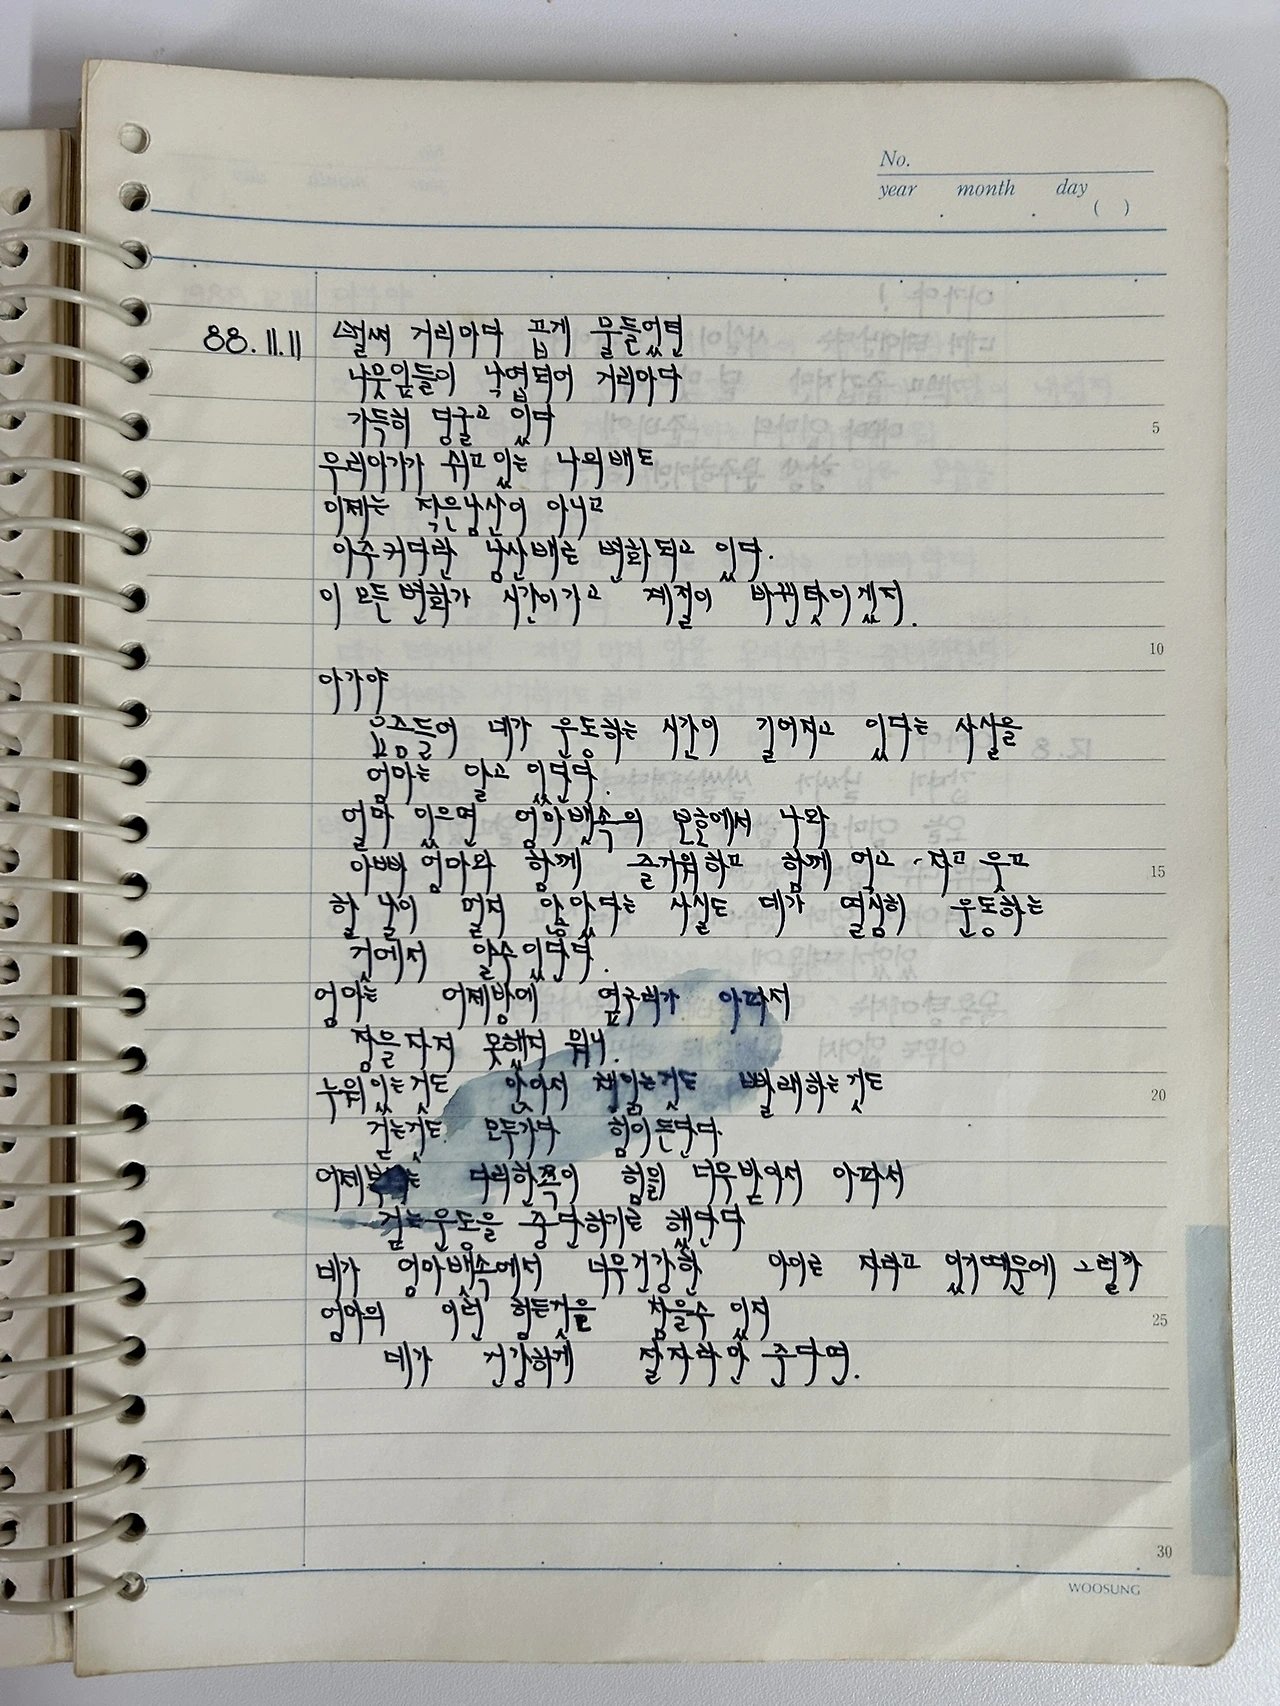 No.
year month day
( )
88.11.11 벌써 거리마다 곱게 물들었던
나뭇잎들이 낙엽되어 거리마다
가득히 덩굴고 있다
우리아기가 쉬고있는 나의배도
이제는 작은남산이 아니고
아주커다란 남산배로 변화되고 있다.
이 모든변화가 시간이가고 계절이 바뀐탓이겠지.
아가야
요즘들어 네가 운동하는 시간이 길어지고 있다는 사실을
엄마는 알고 있단다.
얼마 있으면 엄마뱃속의 모습에서 나와
아빠 엄마와 함께 즐거워하고 함께 먹고 자고 웃고
할 날이 멀지 않았다는 사실도 네가 열심히 운동하는
것에서 알수있단다.
엄마는 어제밤에 옆구리가 아파서
잠을자지 못했지 뭐니.
누워있는것도 앉아서 책읽는것도 빨래하는것도
걷는것도 모두가다 힘이든단다
어제 다리한쪽이 힘을 너무받아서 아파서
걷는운동을 중단하기로 했단다
네가 엄마뱃속에서 너무건강한 아이로 자라고 있기때문에 그럴까
엄마의 이런 힘든것을 참을수 있지
네가 건강하게 잘자라만 준다면.
5
10
15
20
25
30
WOOSUNG